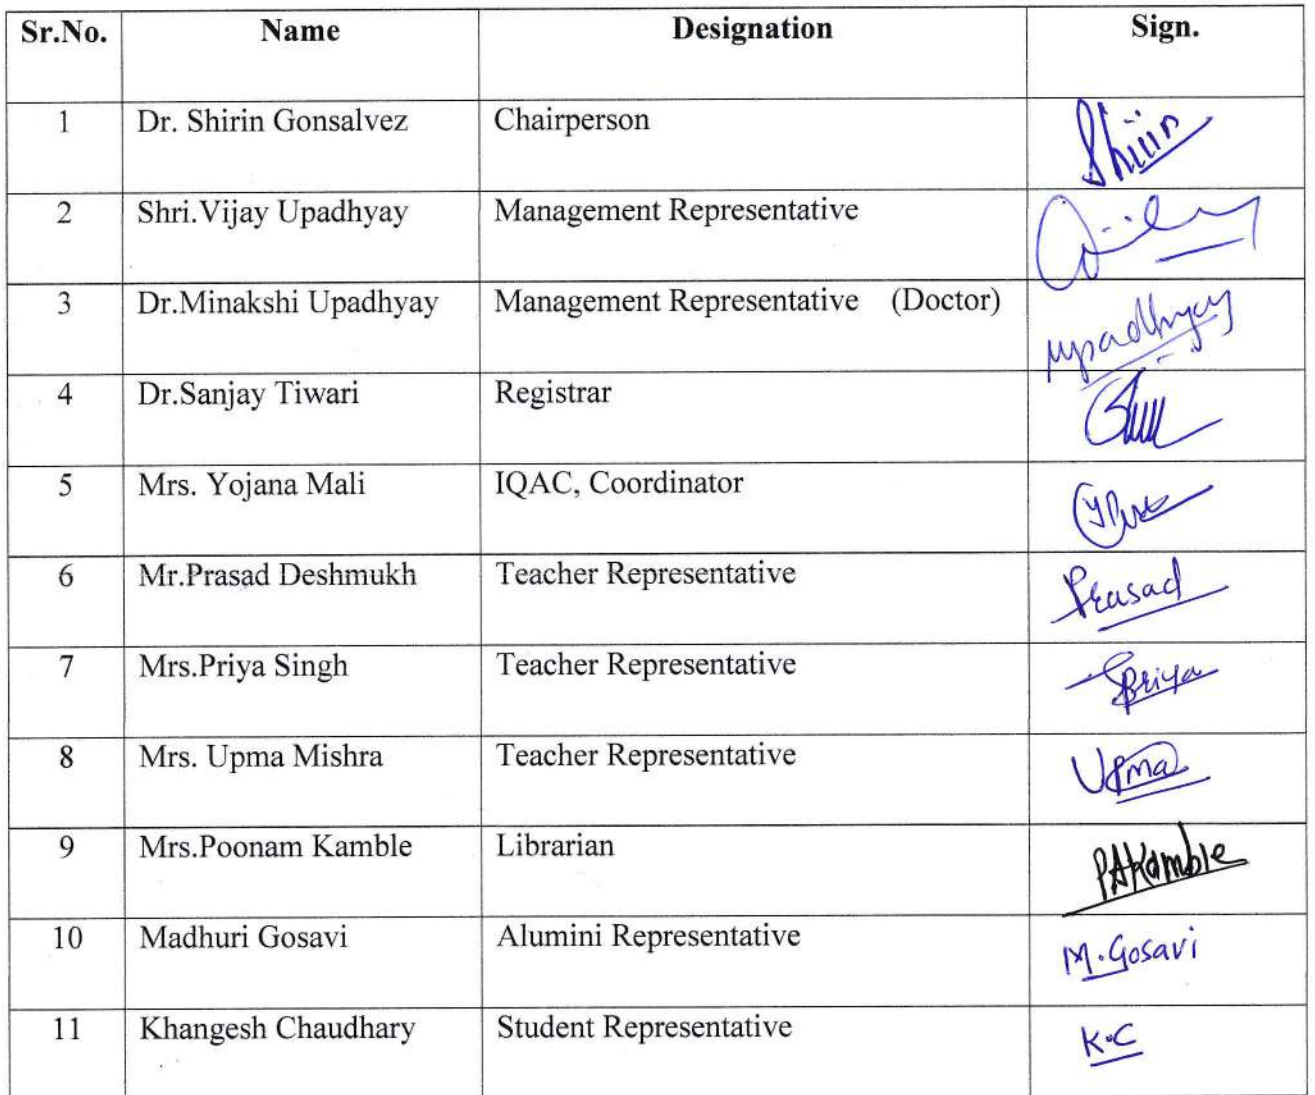 Sr.No. Name Designation Sign.
1 Dr. Shirin Gonsalvez Chairperson Shirin
2 Shri.Vijay Upadhyay Management Representative
3 Dr.Minakshi Upadhyay Management Representative (Doctor) Mpadhyay
4 Dr.Sanjay Tiwari Registrar
5 Mrs. Yojana Mali IQAC, Coordinator
6 Mr.Prasad Deshmukh Teacher Representative Prasad
7 Mrs.Priya Singh Teacher Representative Priya
8 Mrs. Upma Mishra Teacher Representative Upma
9 Mrs.Poonam Kamble Librarian PAKamble
10 Madhuri Gosavi Alumini Representative M.Gosavi
11 Khangesh Chaudhary Student Representative K.C